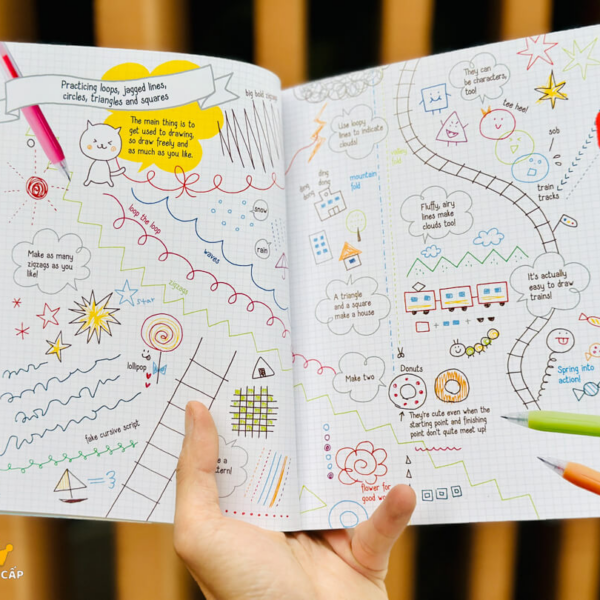 Practicing loops, jagged lines,
circles, triangles and squares
big bold zigzags
The main thing is to
get used to drawing,
so draw freely and
as much as you like.
loop the loop
snow
waves
rain
Make as many
zigzags as you
like!
zigzags
star
lollipop
fake cursive script
=3
They can
be characters,
too!
tee hee!
Use loopy
lines to indicate
clouds!
sob
ding
dong
mountain
fold
valley
fold
train
tracks
Fluffy, airy
lines make
clouds too!
It's actually
easy to draw
trains!
A triangle
and a square
make a house
Make two
Donuts
Spring into
action!
They're cute even when the
starting point and finishing
point don't quite meet up!
flower for
good
CẤP